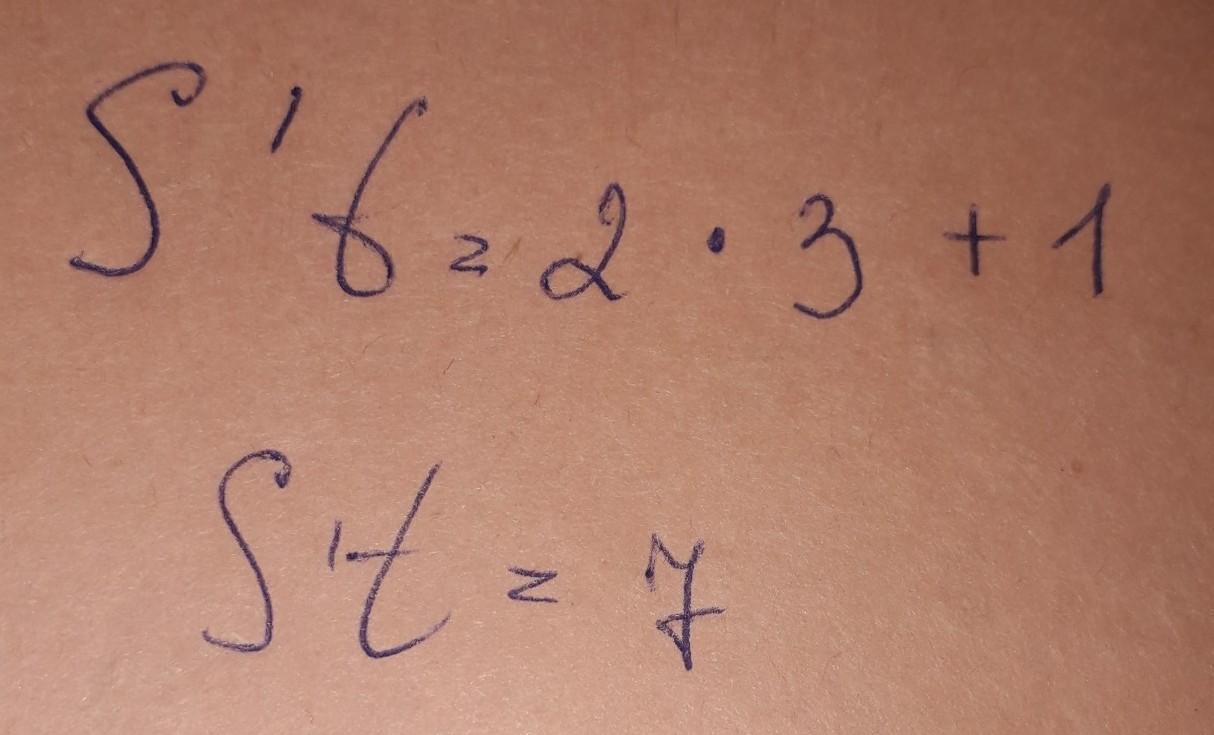 S't = 2 · 3 + 1
S't = 7